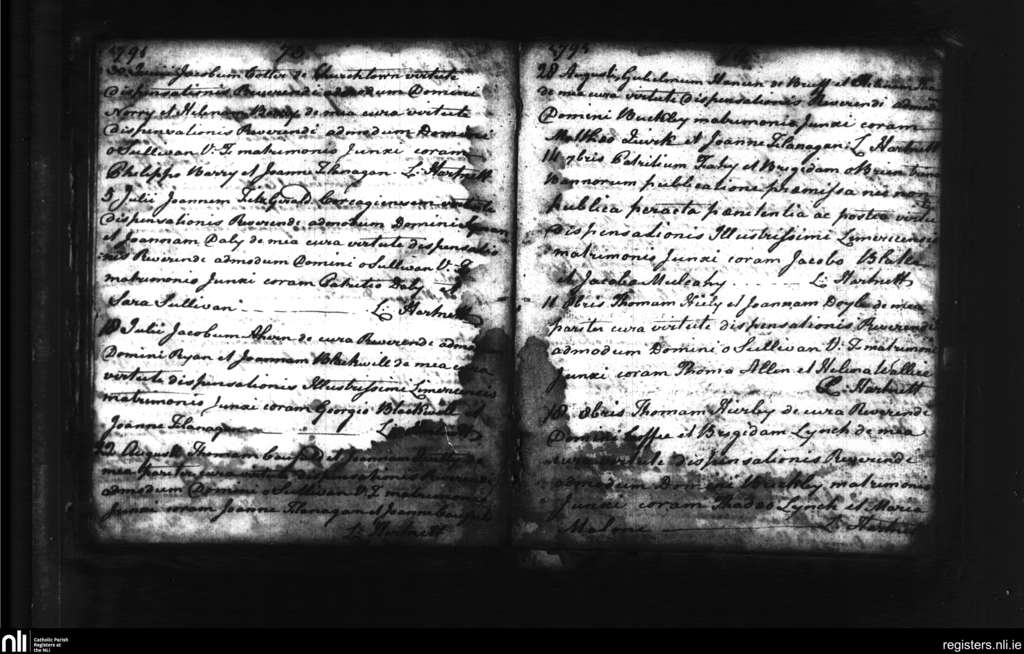 1795
30 Junii Jacobum Cotter de Churchtown virtute
dispensationis Reverendi admodum Domini
Norry et Helenam Barry de mea cura virtute
dispensationis Reverendi admodum Domini
O Sullivan V: F matrimonio Junxi coram
Philippo Barry et Joanne Flanagan L: Hartnett
5 Julii Joannem Fitz Gerald Corcagiensem virtute
dispensationis Reverende admodum Domini
et Joannam Daly de mea cura virtute dispensatio
nis Reverende admodum Domini O Sullivan V: F
matrimonio Junxi coram Patritio Daly et
Sara Sullivan L: Hartnett
19 Julii Jacobum Ahern de cura Reverende admo
Domini Ryan et Joannam Blackwell de mea cura
virtute dispensationis Illustrissimi Limericensis
matrimonio Junxi coram Georgio Blackwell et
Joanne Flanagan L: Hartnett
2 Augusti Thomam et Joannam de
mea pariter cura virtute dispensationis Reverende
admodum Domini O Sullivan V: F matrimonio
Junxi coram Joanne Flanagan et Joanne
L: Hartnett
1795
28 Augusti Gulielmum de Bruff et
de mea cura virtute dispensationis Reverendi admod
Domini Buckley matrimonio Junxi coram
Mattheo Quirk et Joanne Flanagan L Hartnett
14 7bris Patritium et Brigidam O Brien
bannorum publicatione præmissa
publica peracta pænitentia ac postea virtu
dispensationis Illustrissimi Limericensis
matrimonio Junxi coram Jacobo
et Jacobo Mulcahy L: Hartnett
11 8bris Thomam Kiely et Joannam Doyle de mea
pariter cura virtute dispensationis Reverende
admodum Domini O Sullivan V: F matrimoni
Junxi coram Thoma Allen et Helena Wallis
L: Hartnett
18 8bris Thomam Kirby de cura Reverende
Domini Coffee et Brigidam Lynch de mea
cura virtute dispensationis Reverende
admodum Domini Buckley matrimonio
Junxi coram Thadeo Lynch et Maria
Malone L: Hartnett
nli
Catholic Parish
Registers at
the NLI
registers.nli.ie